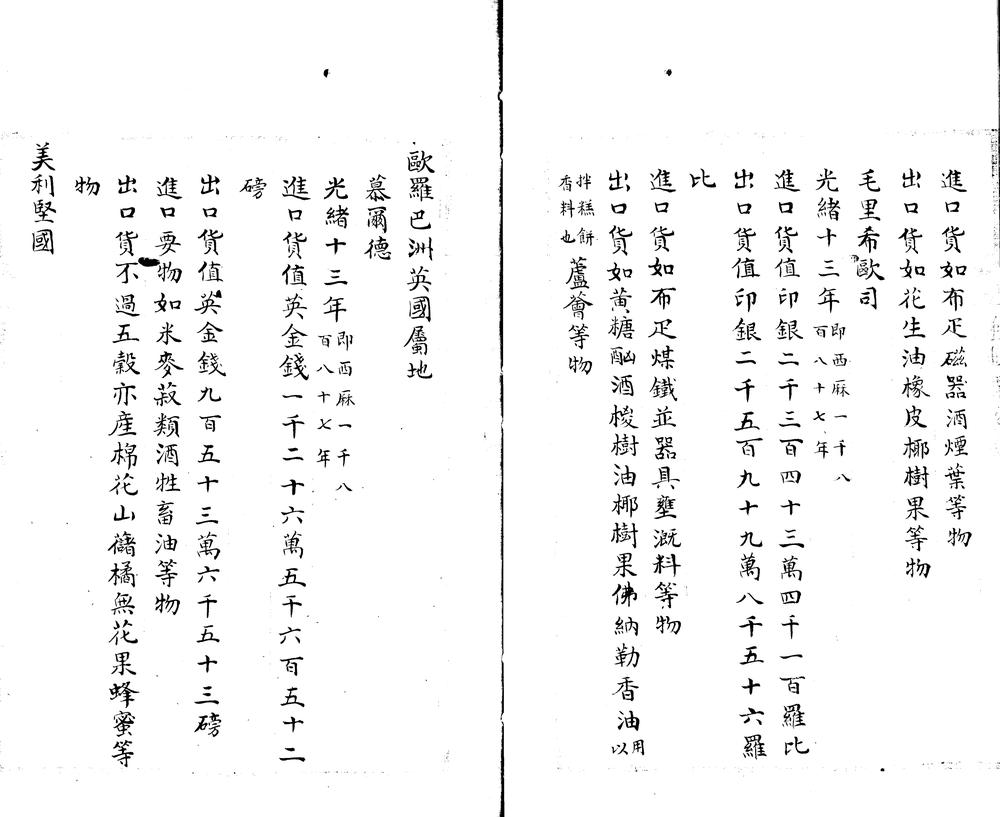 進口貨如布疋磁器酒煙葉等物
出口貨如花生油橡皮椰樹果等物
毛里希歐司
光緒十三年即西厤一千八百八十七年
進口貨值印銀二千三百四十三萬四千一百羅比
出口貨值印銀二千五百九十九萬八千五十六羅
比
進口貨如布疋煤鐵並器具壅溉料等物
出口貨如黃糖酒椶樹油椰樹果佛納勒香油用以
拌糕餅香料也蘆薈等物
歐羅巴洲英國屬地
慕爾德
光緒十三年即西厤一千八百八十七年
進口貨值英金錢一千二十六萬五千六百五十二
磅
出口貨值英金錢九百五十三萬六千五十三磅
進口要物如米麥菽類酒牲畜油等物
出口貨不過五穀亦產棉花山藷橘無花果蜂蜜等
物
美利堅國